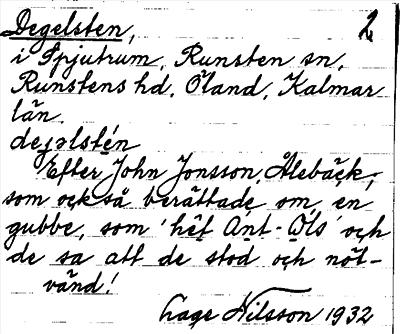 Degelsten, 2
i Spjutrum, Runsten sn,
Runstens hd, Öland, Kalmar
län.
degəlstén
Efter John Jonsson, Ålebäck,
som också berättade om en
gubbe, som 'hêt Ant-Ols' och
de sa att de stod och nöt-
vänd!
Lage Nilsson 1932